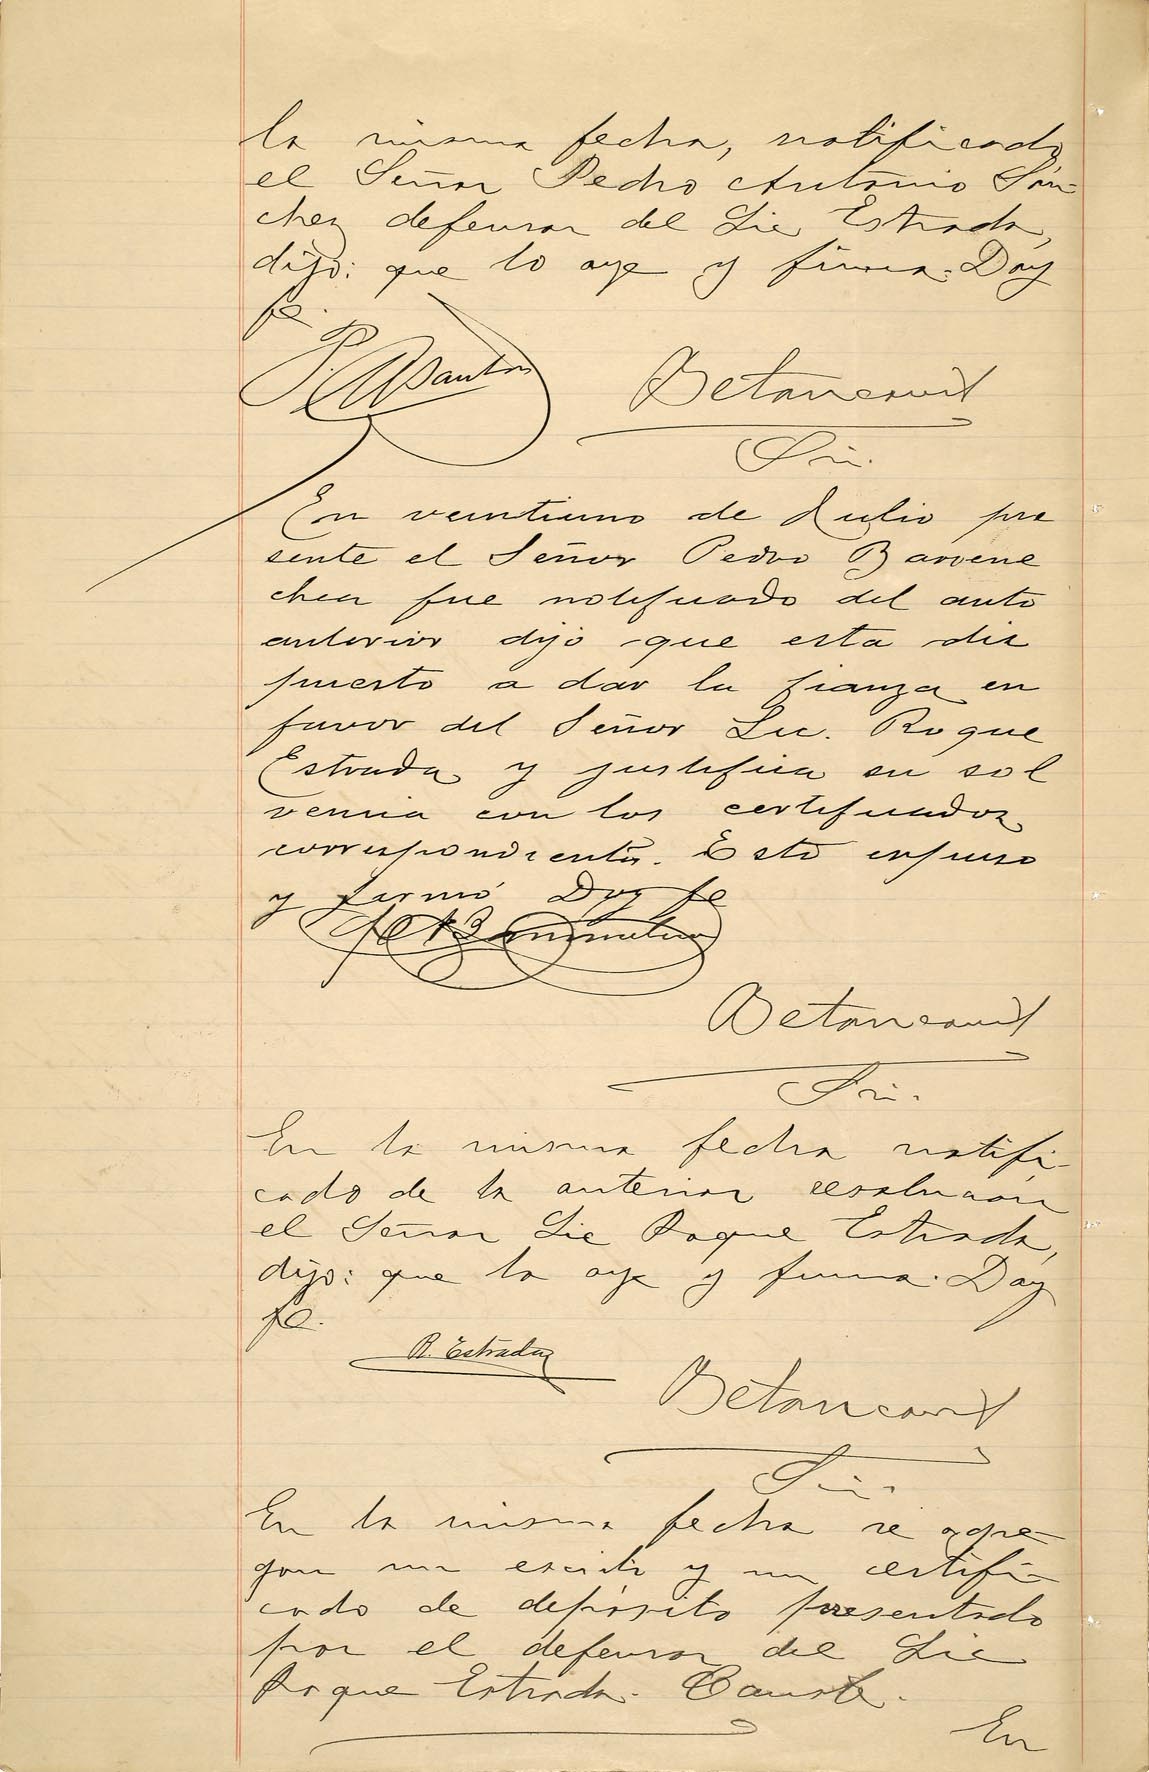 la misma fecha, notificado
el Señor Pedro Antonio Sán-
chez defensor del Lic Estrada,
dijo: que lo oye y firma. Doy
fe.
Betancourt
Sri.
En veintiuno de Julio pre
sente el Señor Pedro Barrene
chea fue notificado del auto
anterior dijo que esta dis
puesto a dar la fianza en
favor del Señor Lic. Roque
Estrada y justifica su sol
vencia con los certificados
correspondientes. Esto expuso
y firmó Doy fe
Betancourt
Sri.
En la misma fecha notifi-
cado de la anterior resolución
el Señor Lic Roque Estrada,
dijo: que la oye y firma. Doy
fe.
R. Estrada
Betancourt
Sri.
En la misma fecha se agre-
gan un escrito y un certifi-
cado de depósito presentado
por el defensor del Lic
Roque Estrada. Conste.
En